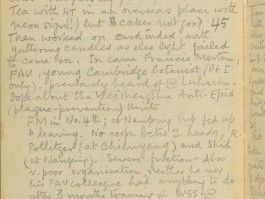 Tea with HT in an overseas place with
neon sign! but cakes not too) 45
Then worked on card index with
guttering candles as elec light failed
to come on. In came Francis Newton,
FAU, young Cambridge botanist (Pt I
only), previously heard of @
dope about the Weishengshu Anti-Epid
(plague prevention) Units
FM in No. 4th; at Nanping but fed up
& leaving. No corp betw 2 heads, R
Pollitzer (at Chihuyang) and Shih
(at Nanping). Severe friction - also
v. poor organisation neither he nor
his FAU colleague had anything to do
after 3 months training in bugs! @